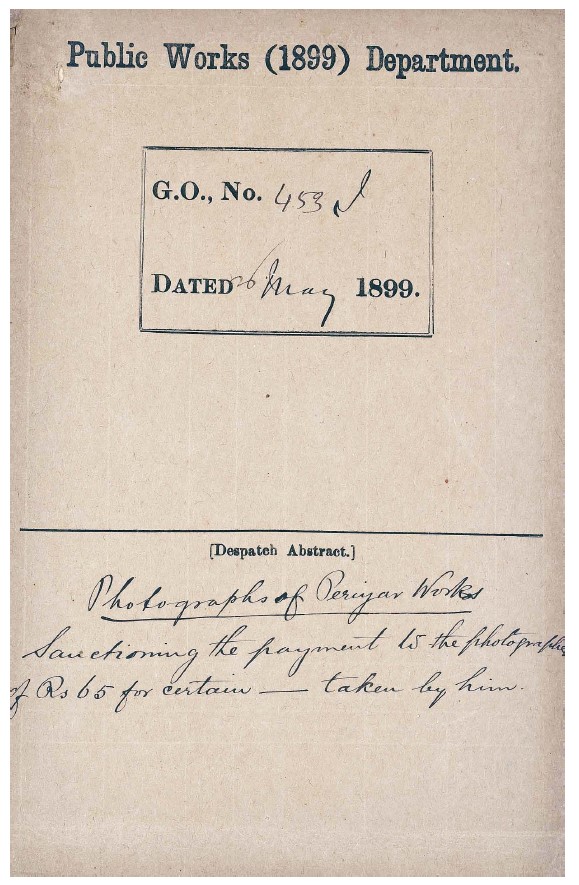 Public Works (1899) Department.
G.O., No. 453 I
DATED 26 May 1899.
[Despatch Abstract.]
Photographs of Periyar Works
Sanctioning the payment to the photographer
of Rs 65 for certain — taken by him.